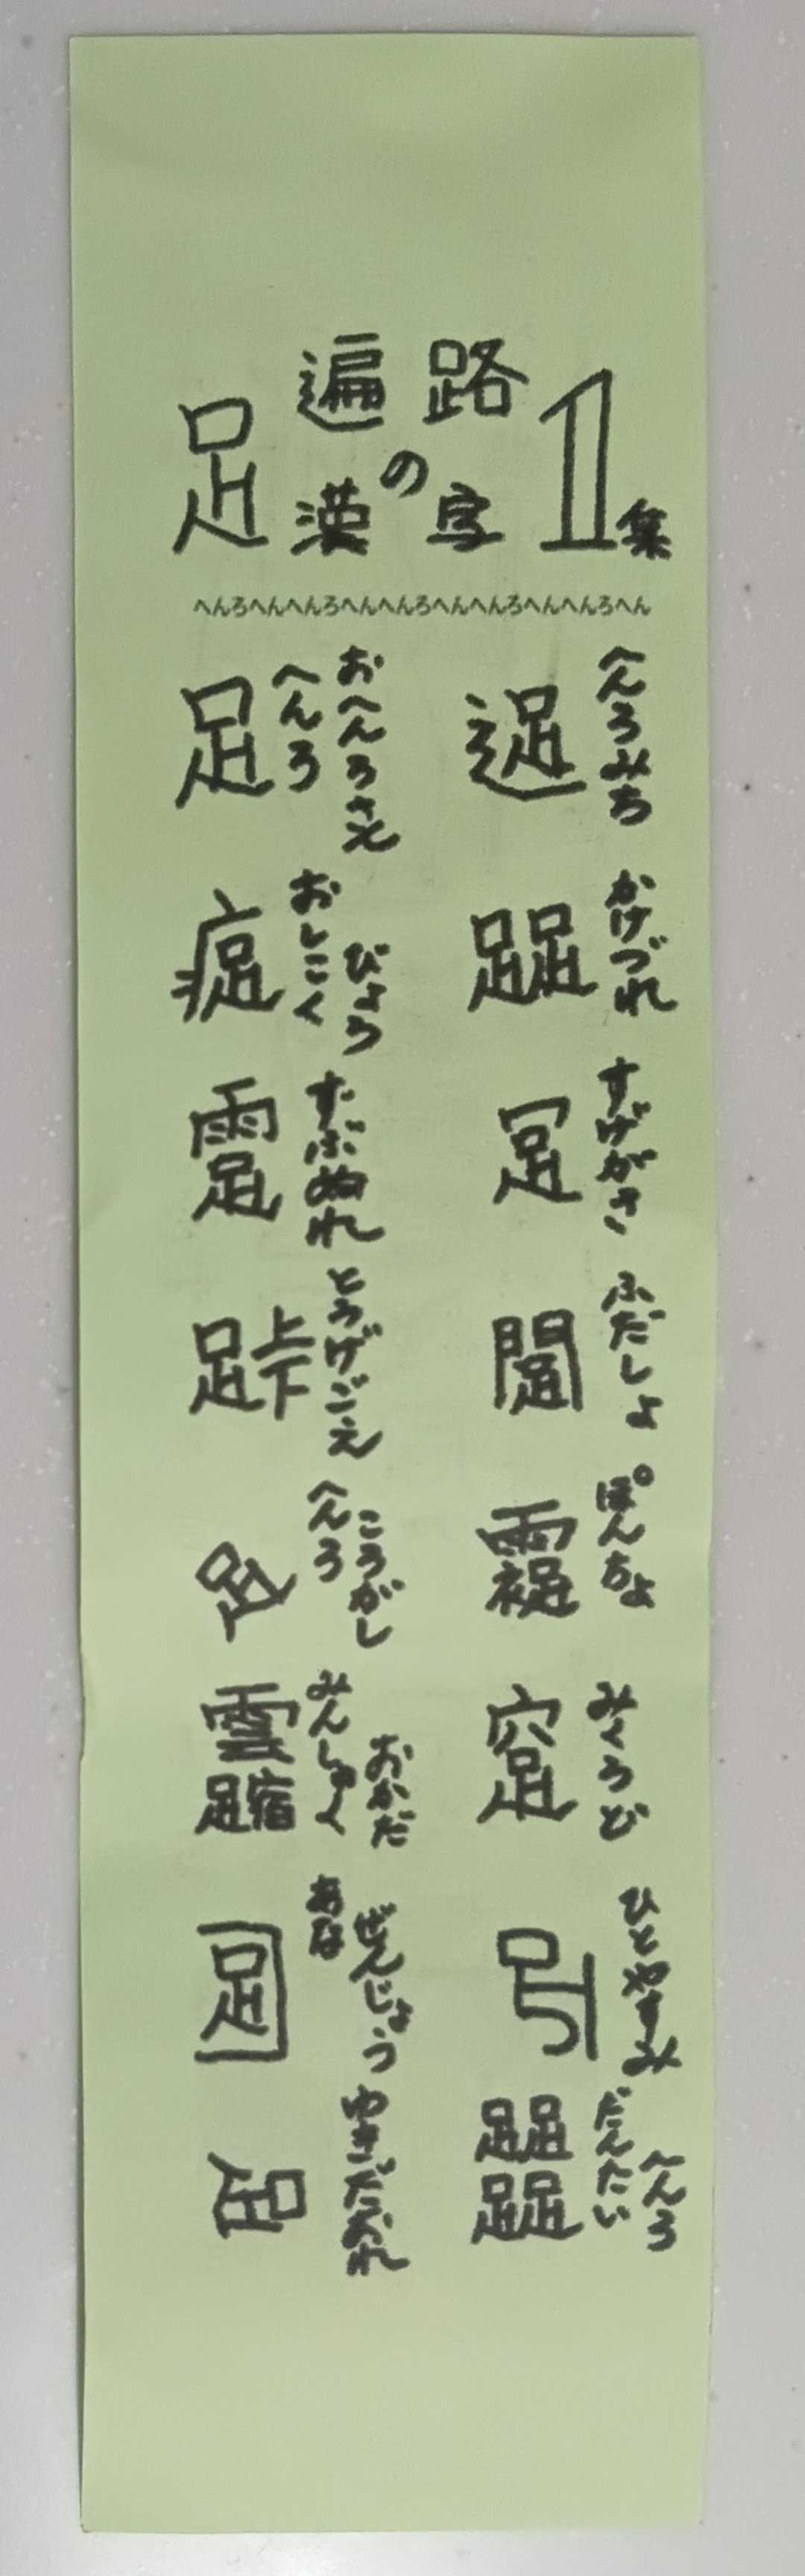 足 遍路の漢字 1集
へんろへんへんろへんへんろへんへんろへんへんろへん
足 へんろ おへんろさん
へんろみち
おしこく びょう
かけづれ
ずぶぬれ
すげがさ
とうげごえ
ふだしょ
へんろ ころがし
ぽんちょ
みんしゅく おかだ
みくろど
あな ぜんじょう
ひとやすみ
足 ゆきだおれ
だんたい へんろ